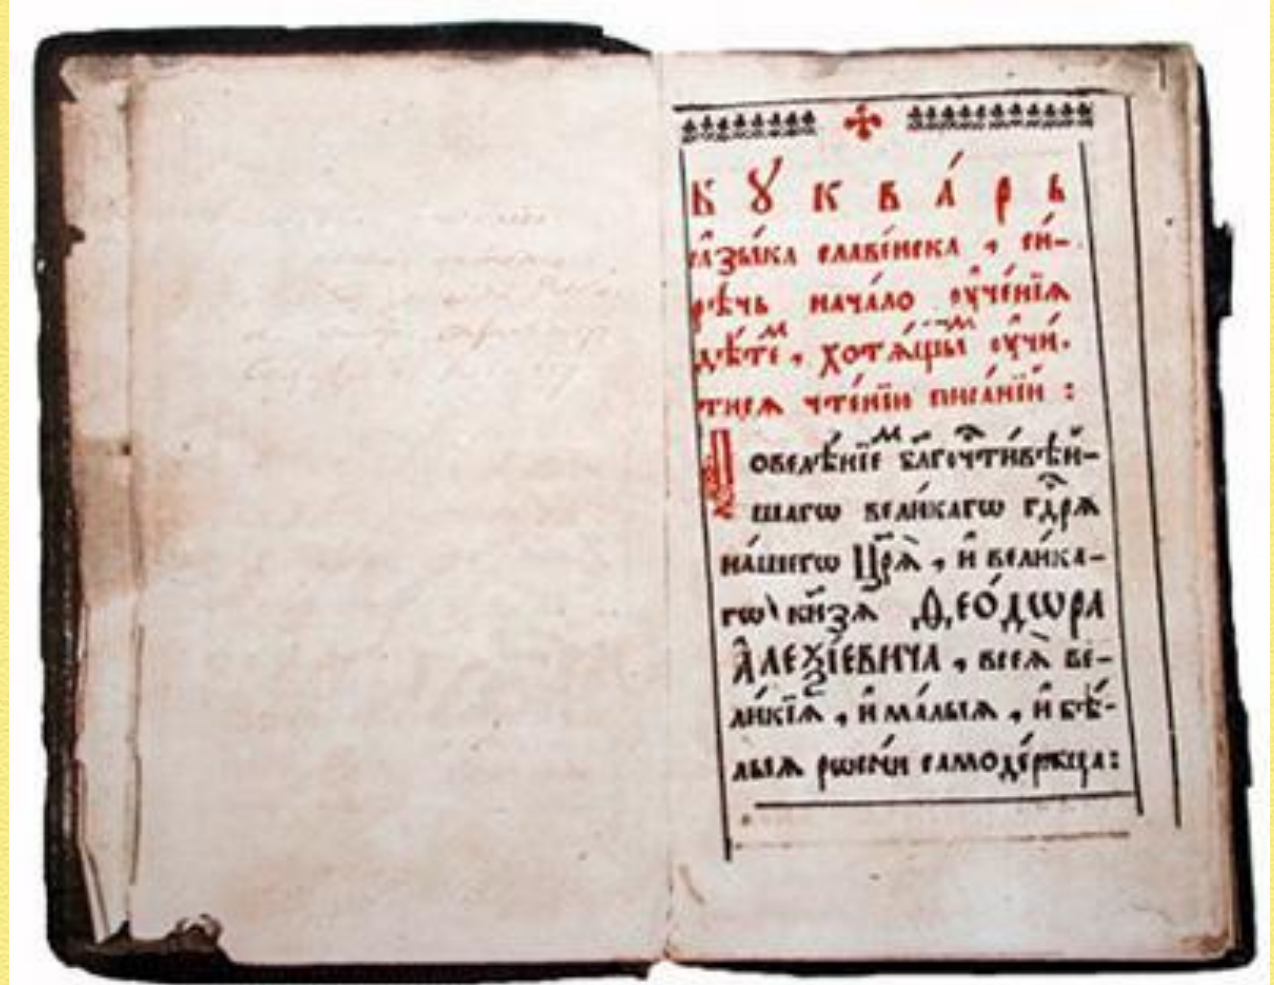 Б Ꙋ К В А́ Р Ь
ѧ҆зы́ка славе́нска , си́-
рѣчь нача́ло ᲂу҆че́нїѧ
дѣ́теⷨ , хотѧ́щыⷨ ᲂу҆чи́-
тисѧ чте́нїи писа́нїй :
Повелѣ́нїеⷨ бл҃гочⷭ҇ти́вѣй-
шагѡ вели́кагѡ гдⷭ҇рѧ̀
на́шегѡ Цр҃ѧ̀ , и҆ вели́ка-
гѡ кн҃зѧ Ѳ҆ео́дѡра
А҆леѯі́евича , всеѧ̀ ве-
ли́кїѧ , и҆ ма́лыѧ , и҆ бѣ́-
лыѧ рѡссі́и самоде́ржца :